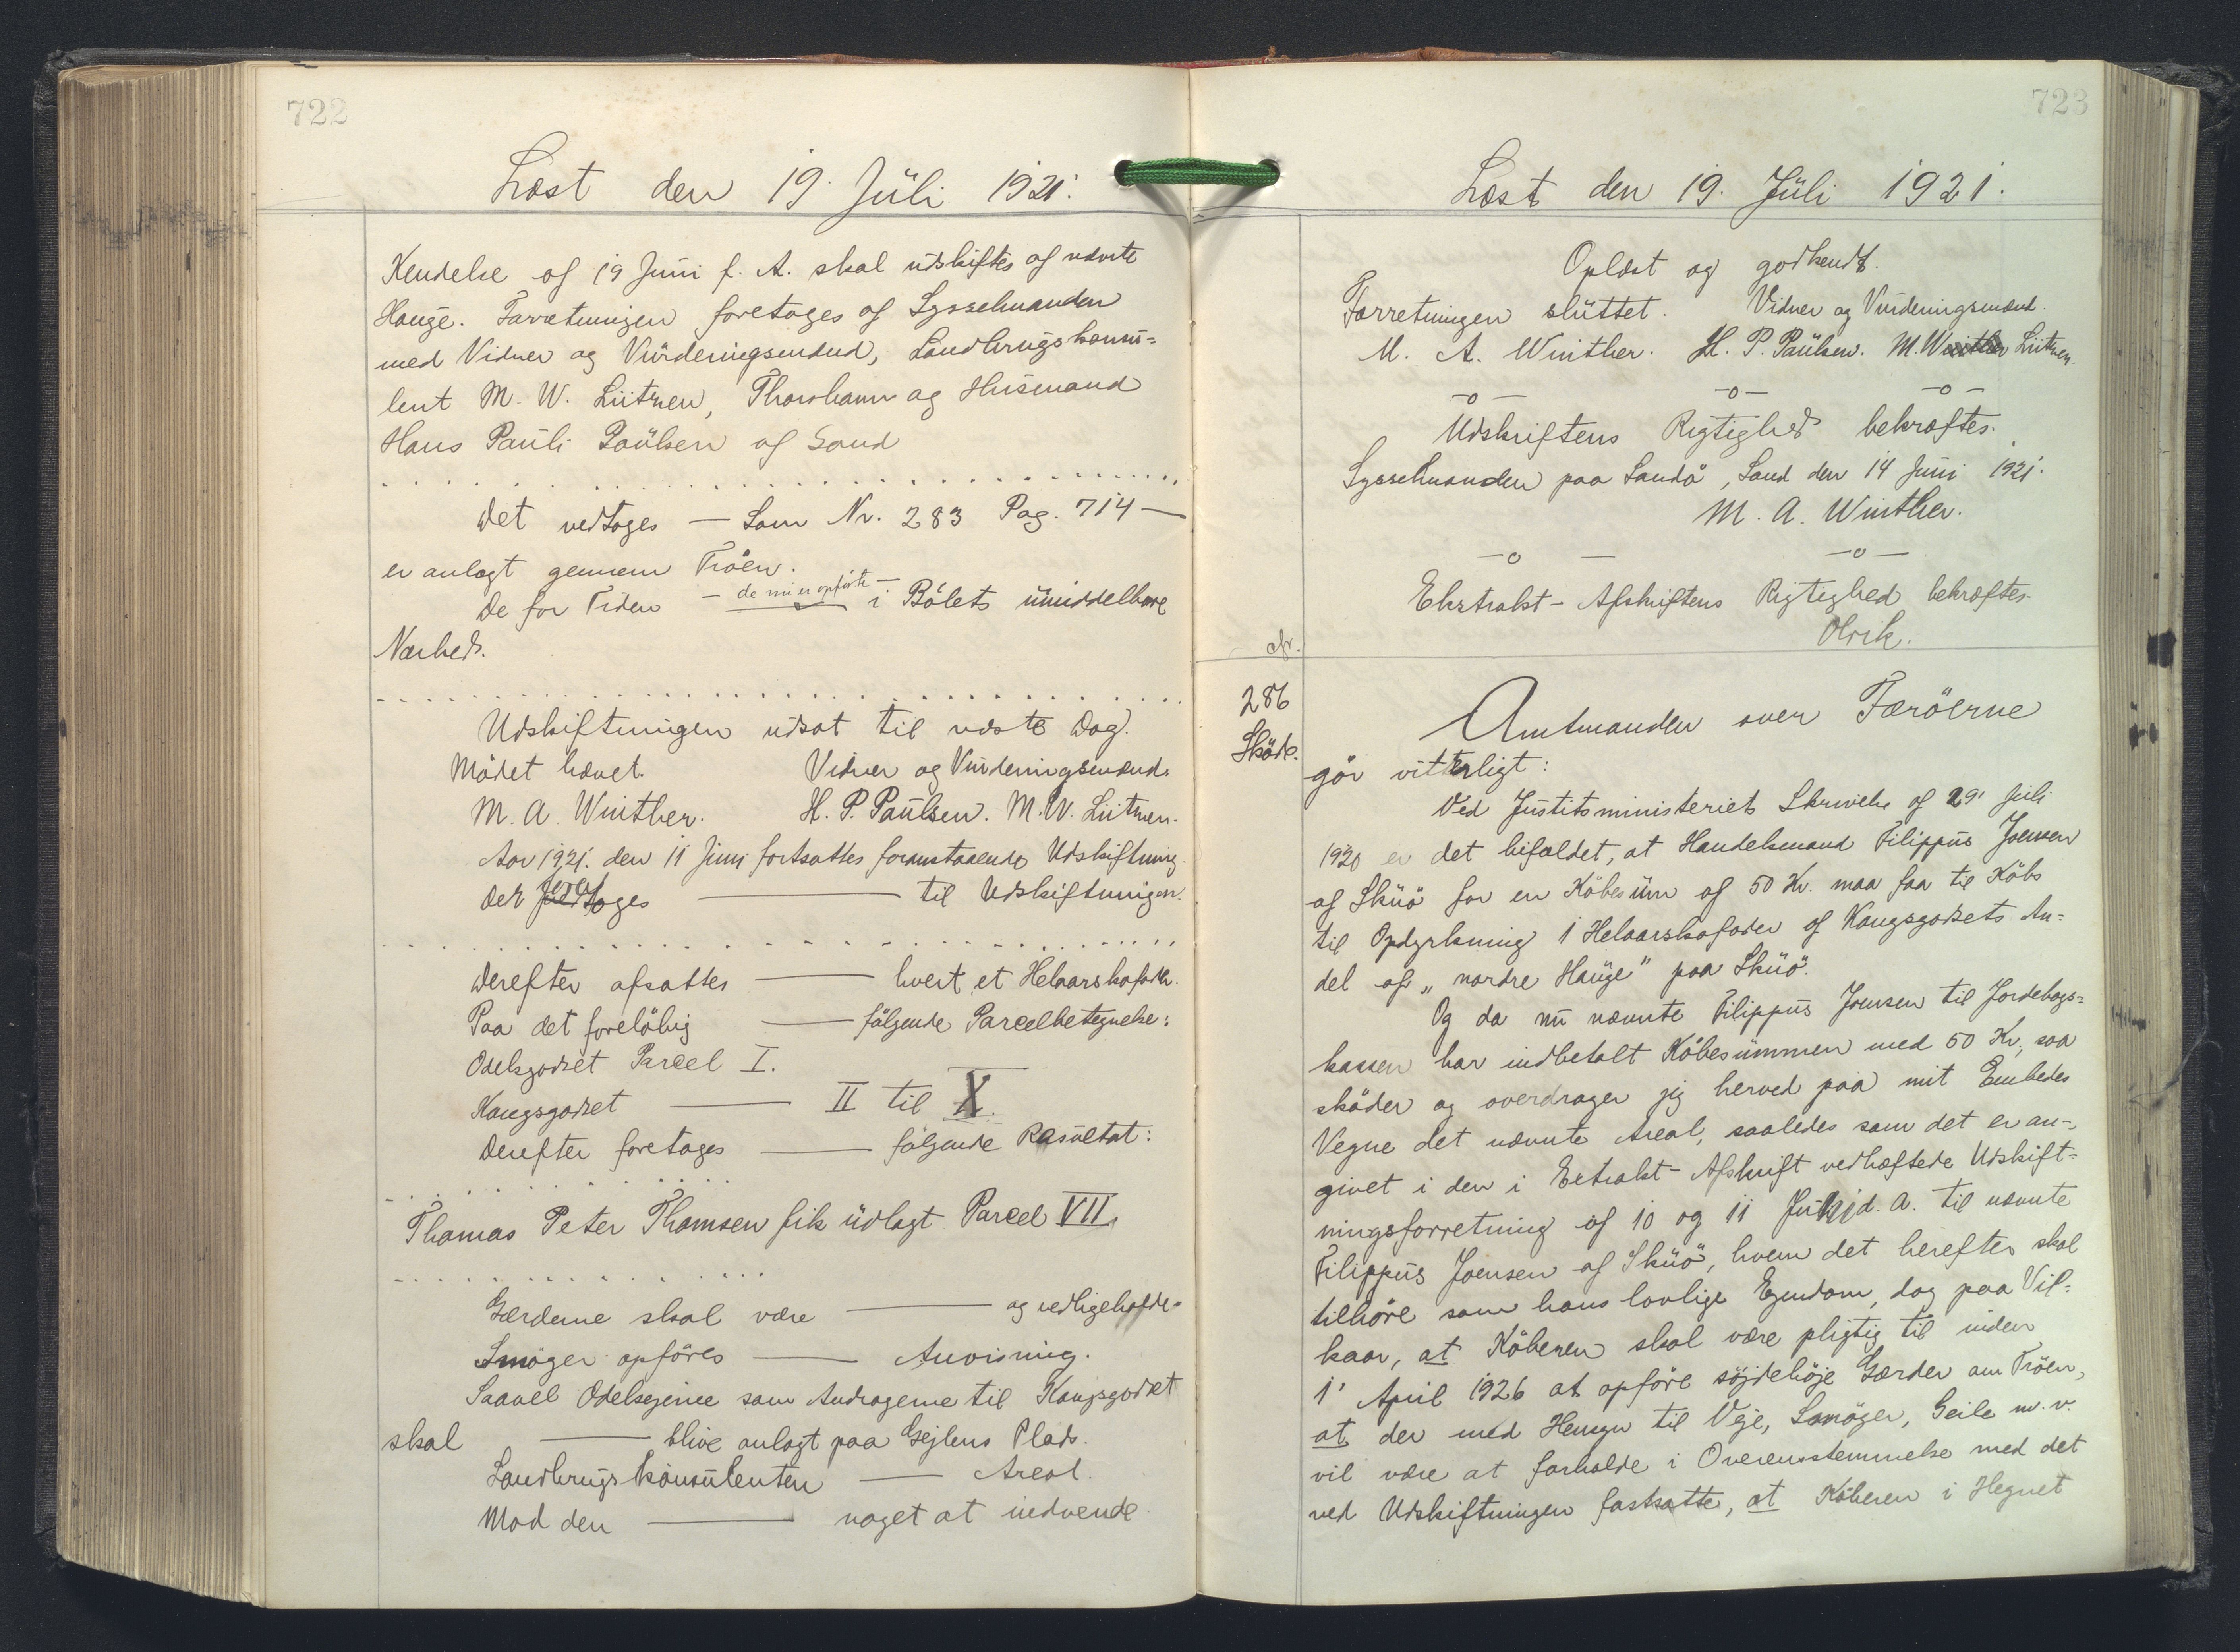 722
Læst den 19. Juli 1921.
Kendelse af 19 Juni f. A. skal udskiftes af nævnte
Hauge. Forretningen foretages af Sysselmanden
med Vidner og Vurderingsmænd, Landbrugskonsu=
lent M. W. Lützen, Thorshavn og Husmand
Hans Pauli Paulsen af Sand
Det vedtoges — Som Nr. 283 Pag. 714 —
er anlagt gennem Tröen.
De for Tiden — de nu er opførte — i Bólets umiddelbare
Nærhed.
Udskiftningen udsat til næste Dag.
Mödet hævet. Vidner og Vurderingsmænd.
M. A. Winther. H. P. Paulsen. M. W. Lützen.
Aar 1921. den 11 Juni fortsattes foranstaaende Udskiftning.
Det foretoges — til Udskiftningen.
Derefter afsattes — hvert et Helaarskofoder.
Paa det foreløbig — følgende Parcelbetegnelse:
Odelsgodset Parcel I.
Kongsgodset — II til X.
Derefter foretages — følgende Resultat:
Thomas Peter Thomsen fik udlagt Parcel VII.
Gærderne skal være — og vedligeholde.
Smöger opföres — Anvisning.
Saavel Odelsejerne som Andragerne til Kongsgodset
skal — blive anlagt paa Gejlens Plads.
Landbrugskonsulenten — Areal.
Mod den — noget at indvende
723
Læst den 19. Juli 1921.
Oplæst og godkendt.
Forretningen sluttet. Vidner og Vurderingsmænd.
M. A. Winther. H. P. Paulsen. M. W. Lützen.
—o— —o— —o—
Udskriftens Rigtighed bekræftes.
Sysselmanden paa Sandö, Sand den 14 Juni 1921.
M. A. Winther.
—o— —o—
Ekstrakt-Afskriftens Rigtighed bekræftes.
Olrik.
afr.
286
Sköde.
Amtmanden over Færöerne
gör vitterligt:
Ved Justitsministeriets Skrivelse af 29' Juli
1920 er det bifaldet, at Handelsmand Filippus Joensen
af Skuö for en Köbesum af 50 Kr. maa faa til Köbs
til Opdyrkning 1 Helaarskofoder af Kongsgodsets An=
del af „nordre Hauge" paa Skuö.
Og da nu nævnte Filippus Joensen til Jordebogs=
kassen har indbetalt Köbesummen med 50 Kr, saa
sköder og overdrager jeg herved paa mit Embedes
Vegne det nævnte Areal, saaledes som det er an=
givet i den i Extrakt-Afskrift vedhæftede Udskift=
ningsforretning af 10 og 11 Juni d. A. til nævnte
Filippus Joensen af Skuö, hvem det herefter skal
tilhöre som hans lovlige Ejendom, dog paa Vil=
kaar, at Köberen skal være pligtig til inden
1' April 1926 at opföre söjdehöje Gærder om Tröen,
at der med Hensyn til Veje, Smöger, Geile m. v.
vil være at forholde i Overensstemmelse med det
ved Udskiftningen fastsatte, at Köberen i Hegnet